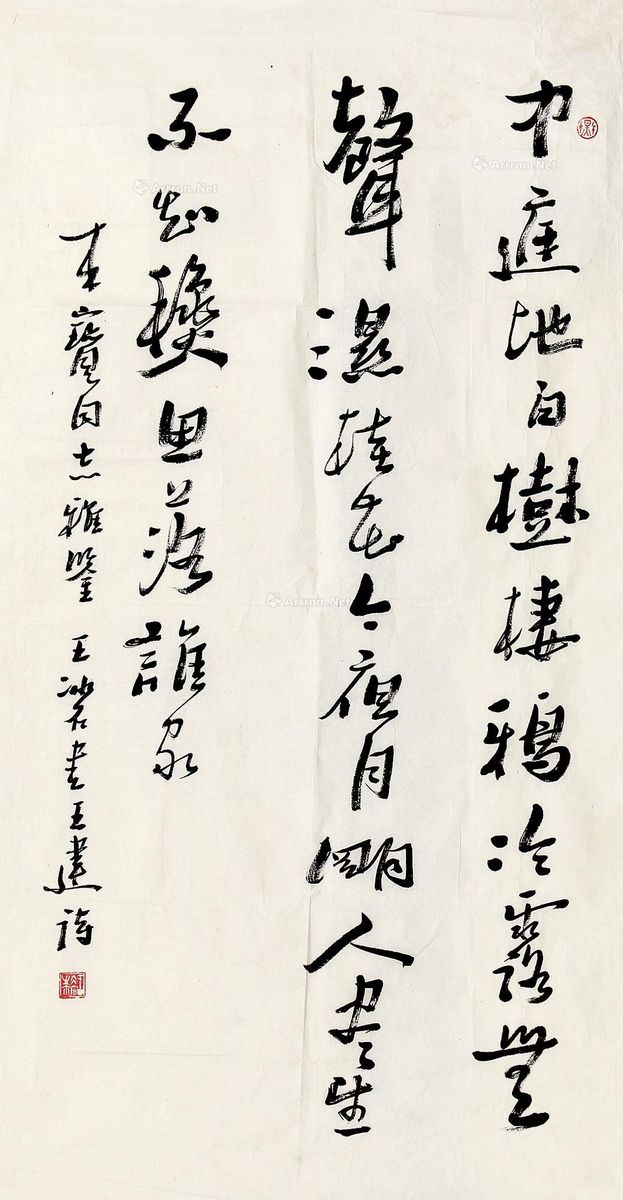 中庭地白樹棲鴉冷露無
聲濕桂花今夜月明人盡望
不知秋思落誰家
寶同志雅鑒 王冰石書王建詩
Artron.Net
Artron.Net
Artron.Net